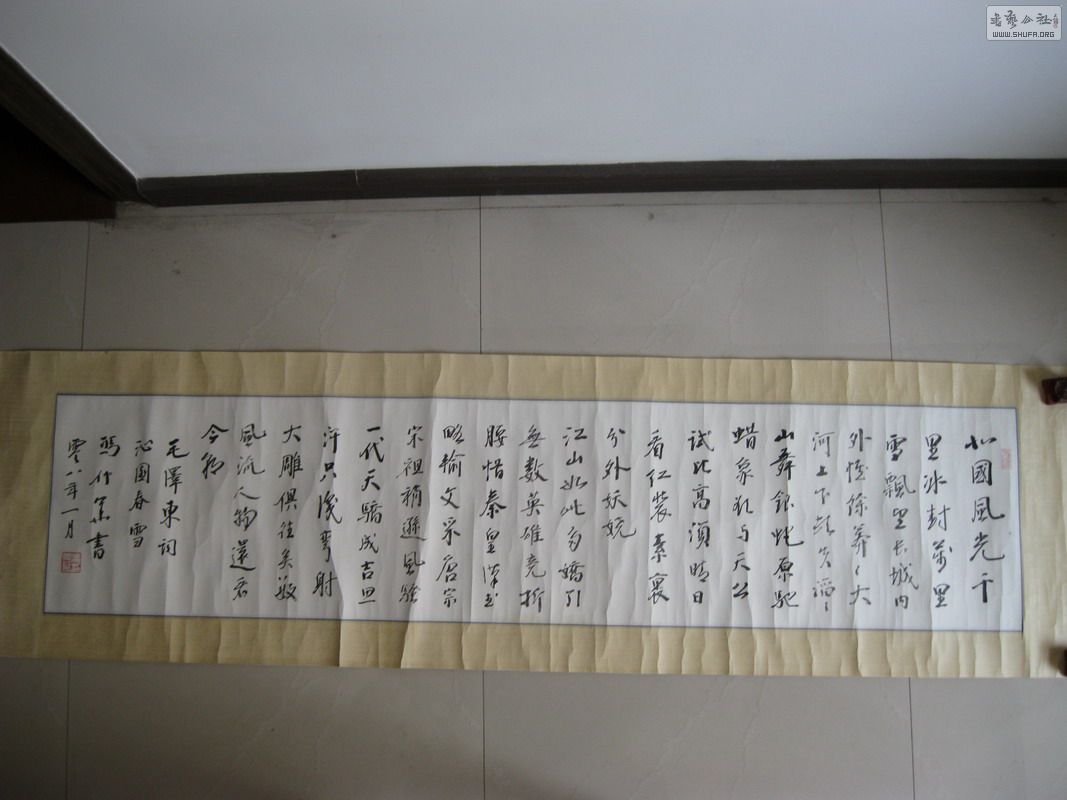 北國風光千
里冰封萬里
雪飄望长城内
外惟餘莽〻大
河上下頓失滔〻
山舞銀蛇原馳
蜡象欲与天公
試比高須晴日
看红装素裹
分外妖娆
江山如此多嬌引
無數英雄竞折
腰惜秦皇漢武
略输文采唐宗
宋祖稍遜風骚
一代天驕成吉思
汗只識彎射
大雕俱往矣數
風流人物還看
今朝
毛澤東词
沁園春雪
竹書
零八年一月
書藝公社
WWW.SHUFA.ORG